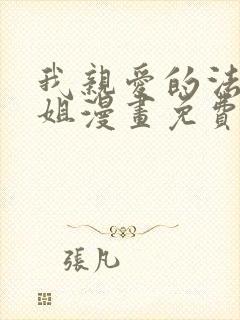 我親愛的法
姐漫畫免費
張凡